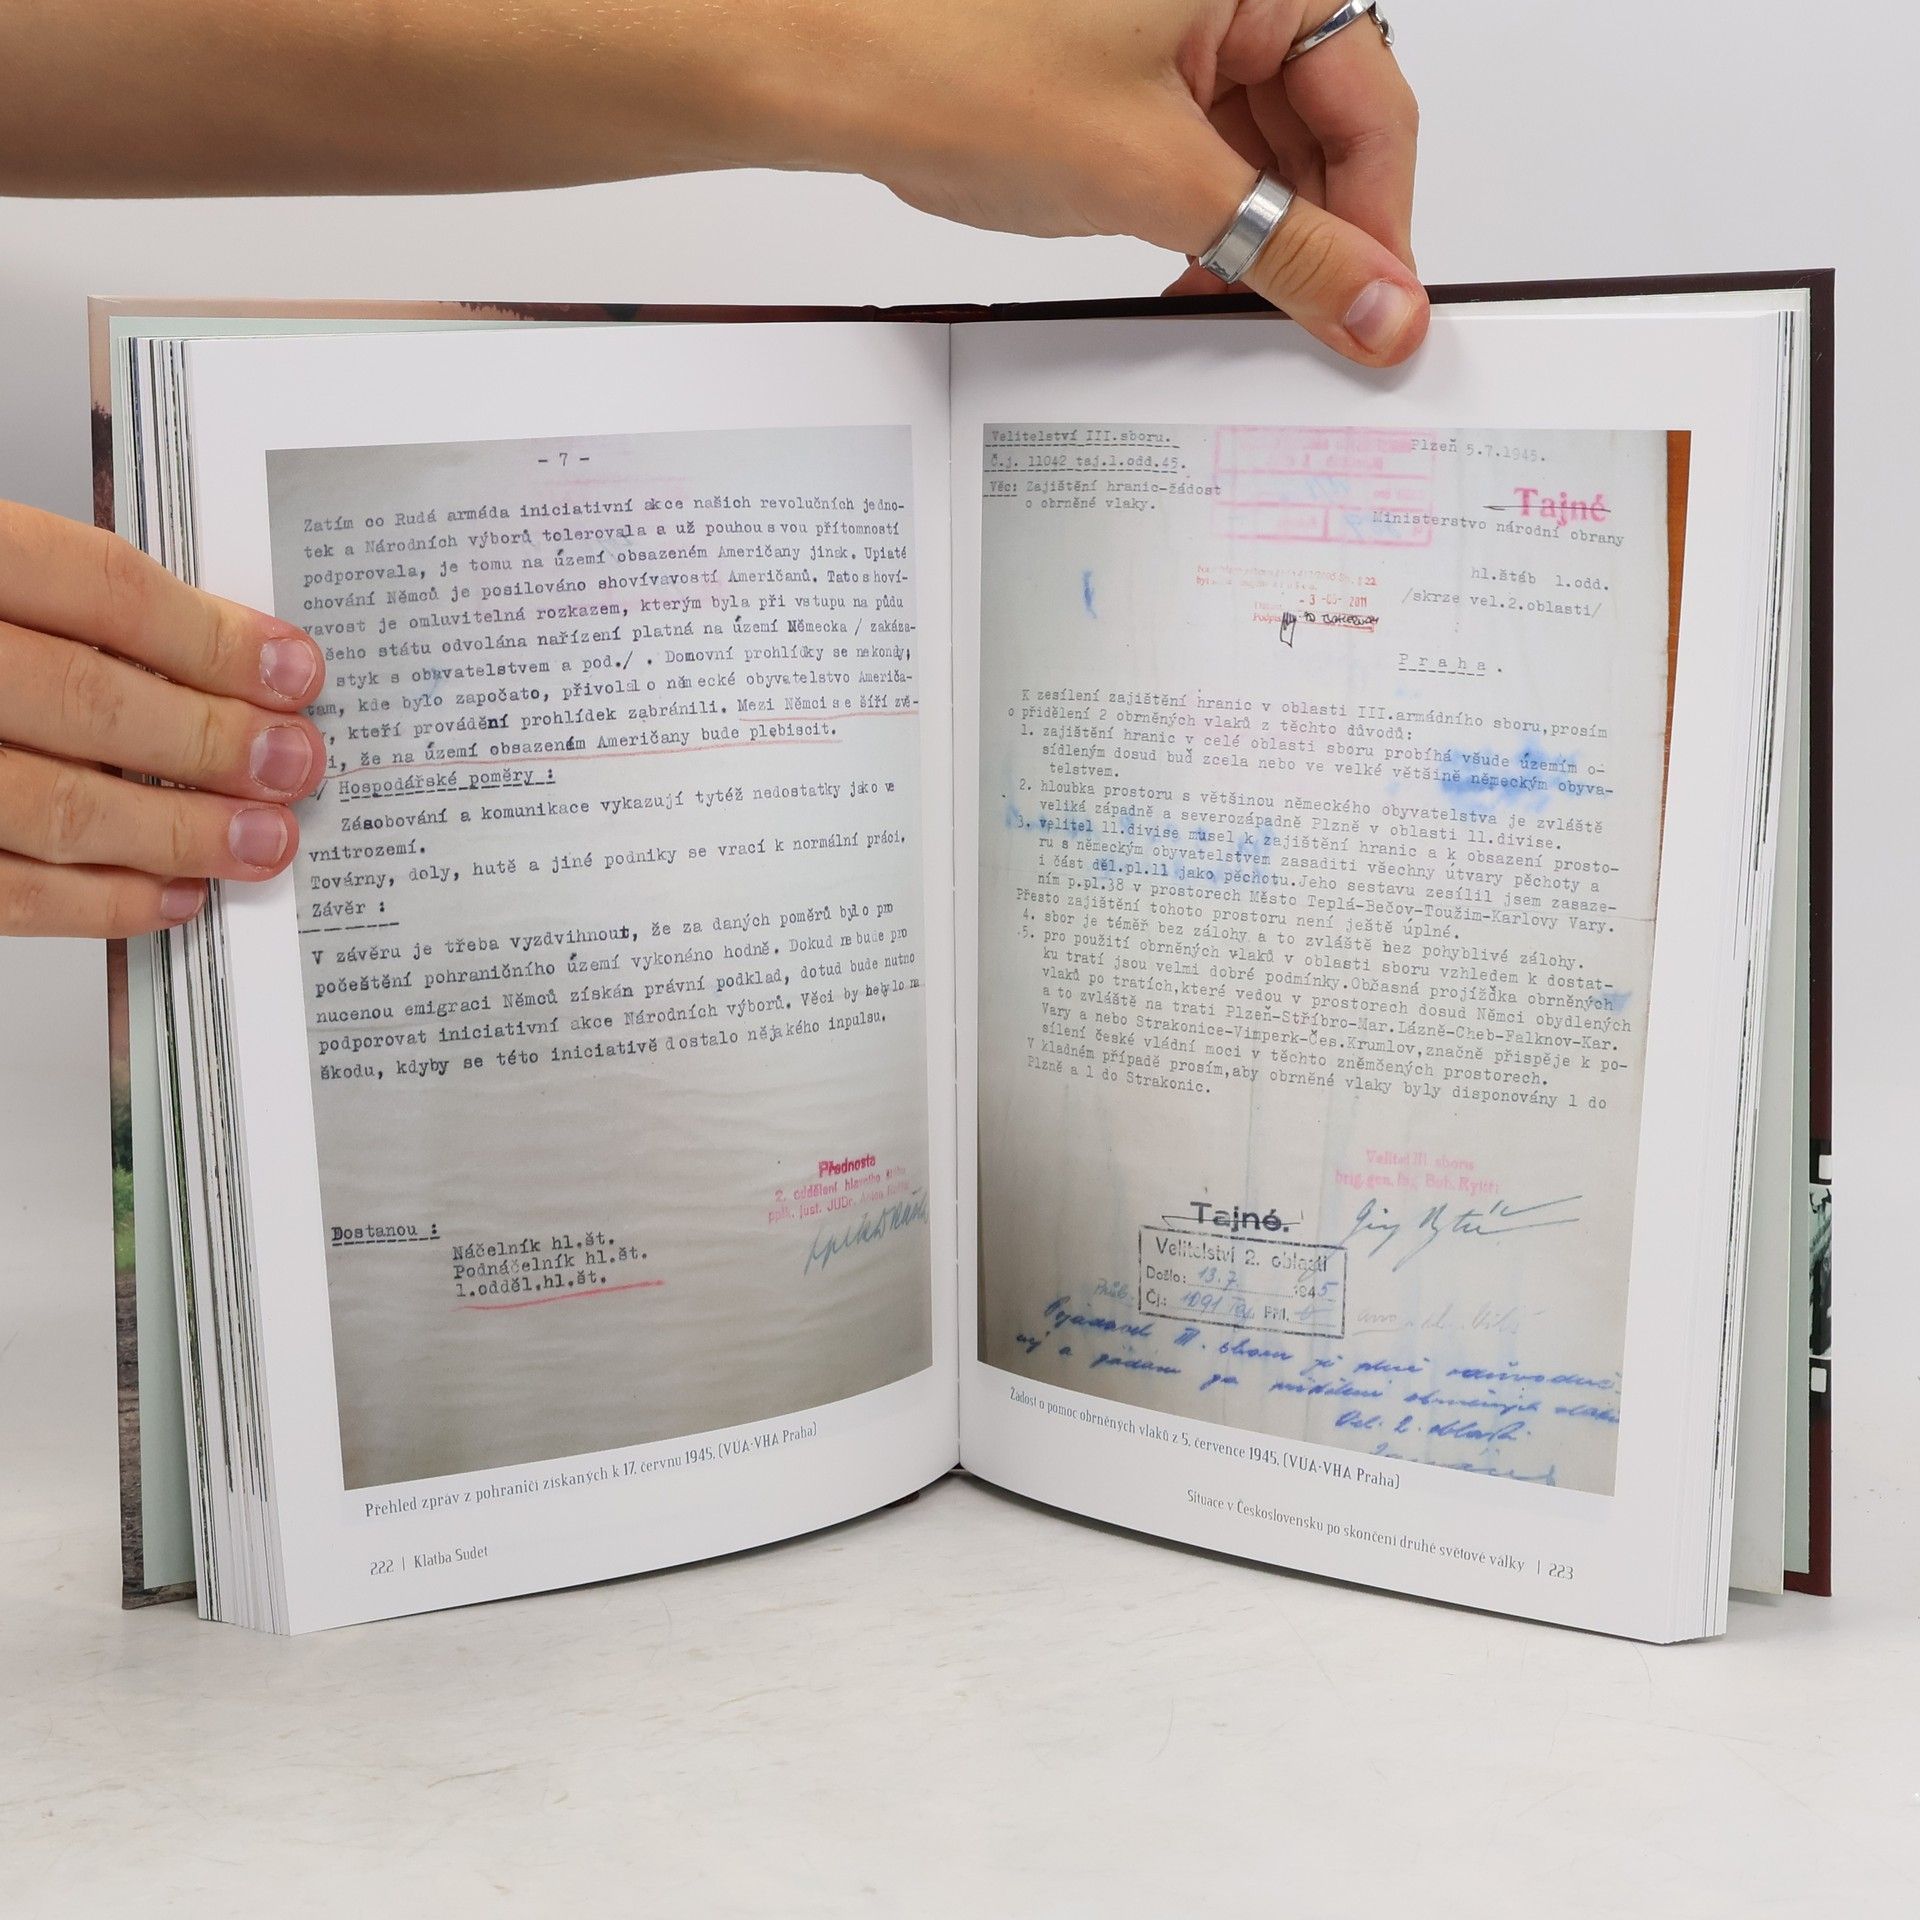 - 7 -
Zatím co Rudá armáda iniciativní akce našich revolučních jedno-
tek a Národních výborů tolerovala a už pouhou svou přítomností
podporovala, je tomu na území obsazeném Američany jinak. Upiaté
chování Němců je posilováno shovívavostí Američanů. Tato shoví-
vavost je omluvitelná rozkazem, kterým byla při vstupu na půdu
šeho státu odvolána nařízení platná na území Německa / zakáza-
styk s obyvatelstvem a pod./ . Domovní prohlídky se nekonaly,
tam, kde bylo započato, přivolalo německé obyvatelstvo Američa-
, kteří provádění prohlídek zabránili. Mezi Němci se šíří zvě-
i, že na území obsazeném Američany bude plebiscit.
/ Hospodářské poměry :
Zásobování a komunikace vykazují tytéž nedostatky jako ve
vnitrozemí.
Továrny, doly, hutě a jiné podniky se vrací k normální práci.
Závěr :
V závěru je třeba vyzdvihnout, že za daných poměrů bylo pro
počeštění pohraničního území vykonáno hodně. Dokud ne bude pro
nucenou emigraci Němců získán právní podklad, dotud bude nutno
podporovat iniciativní akce Národních výborů. Věci by nebylo na
škodu, kdyby se této iniciativě dostalo nějakého inpulsu.
Přednosta
2. oddělení hlavního
pplk. just. JUDr.
Dostanou :
Náčelník hl.št.
Podnáčelník hl.št.
1.odděl.hl.št.
Přehled zpráv z pohraničí získaných k 17. červnu 1945. (VÚA-VHA Praha)
222 | Klatba Sudet
Velitelství III.sboru.
Č.j. 11042 taj.1.odd.45.
Věc: Zajištění hranic-žádost
o obrněné vlaky.
Plzeň 5.7.1945.
Tajné
Ministerstvo národní obrany
hl.štáb 1.odd.
/skrze vel.2.oblasti/
- 3 -05- 2011
Praha.
K zesílení zajištění hranic v oblasti III.armádního sboru,prosím
o přidělení 2 obrněných vlaků z těchto důvodů:
1. zajištění hranic v celé oblasti sboru probíhá všude územím o-
sídleným dosud buď zcela nebo ve velké většině německým obyva-
telstvem.
2. hloubka prostoru s většinou německého obyvatelstva je zvláště
veliká západně a severozápadně Plzně v oblasti 11.divise.
3. velitel 11.divise musel k zajištění hranic a k obsazení prosto-
ru s německým obyvatelstvem zasaditi všechny útvary pěchoty a
i část děl.pl.11 jako pěchotu.Jeho sestavu zesílil jsem zasaze-
ním p.pl.38 v prostorech Město Teplá-Bečov-Toužim-Karlovy Vary.
Přesto zajištění tohoto prostoru není ještě úplné.
4. sbor je téměř bez zálohy a to zvláště bez pohyblivé zálohy.
5. pro použití obrněných vlaků v oblasti sboru vzhledem k dostat-
ku tratí jsou velmi dobré podmínky.Občasná projížďka obrněných
vlaků po tratích,které vedou v prostorech dosud Němci obydlených
a to zvláště na trati Plzeň-Stříbro-Mar.Lázně-Cheb-Falknov-Kar.
Vary a nebo Strakonice-Vimperk-Čes.Krumlov,značně přispěje k po-
sílení české vládní moci v těchto zněmčených prostorech.
V kladném případě prosím,aby obrněné vlaky byly disponovány 1 do
Plzně a 1 do Strakonic.
Velitel III. sboru
brig.gen. Ing. Boh.
Tajné.
Velitelství 2. oblasti
Došlo: 13.7. 1945
Čj.: 1091 Taj. Příl.
III. sboru je plně
a žádám za přidělení obrněných vlaků
Vel. 2. oblasti
Žádost o pomoc obrněných vlaků z 5. července 1945. (VÚA-VHA Praha)
Situace v Československu po skončení druhé světové války | 223